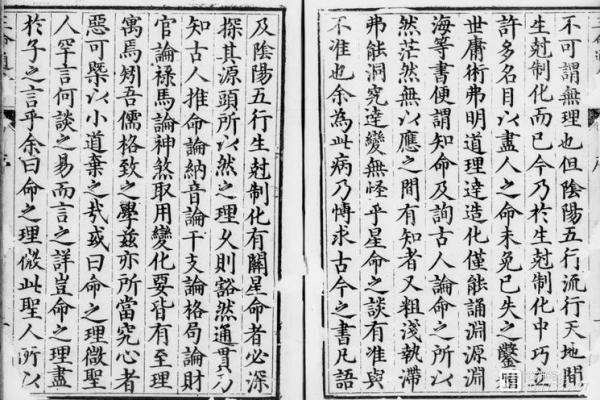 不可謂無理也但陰陽五行流行天地間
生尅制化而已今乃於生尅制化中巧立
許多名目以盡人之命未免已失之鑿
世庸術弗明道理達造化僅能誦淵源淵
海等書便謂知命及詢古人論命之所以
然茫然無以應之間有知者又粗淺執滯
弗能洞究達變無怪乎星命之談有准與
不准也余為此病乃博求古今之書凡語
及陰陽五行生尅制化有關星命者必深
探其源頭所以然之理久則豁然通貫乃
知古人推命論納音論干支論格局論財
官論祿馬論神煞取用變化要皆有至理
寓焉矧吾儒格致之學茲亦所當究心者
惡可槩以小道棄之哉或曰命之理微聖
人罕言何談之易而言之詳豈命之理盡
於子之言乎余曰命之理微此聖人所以